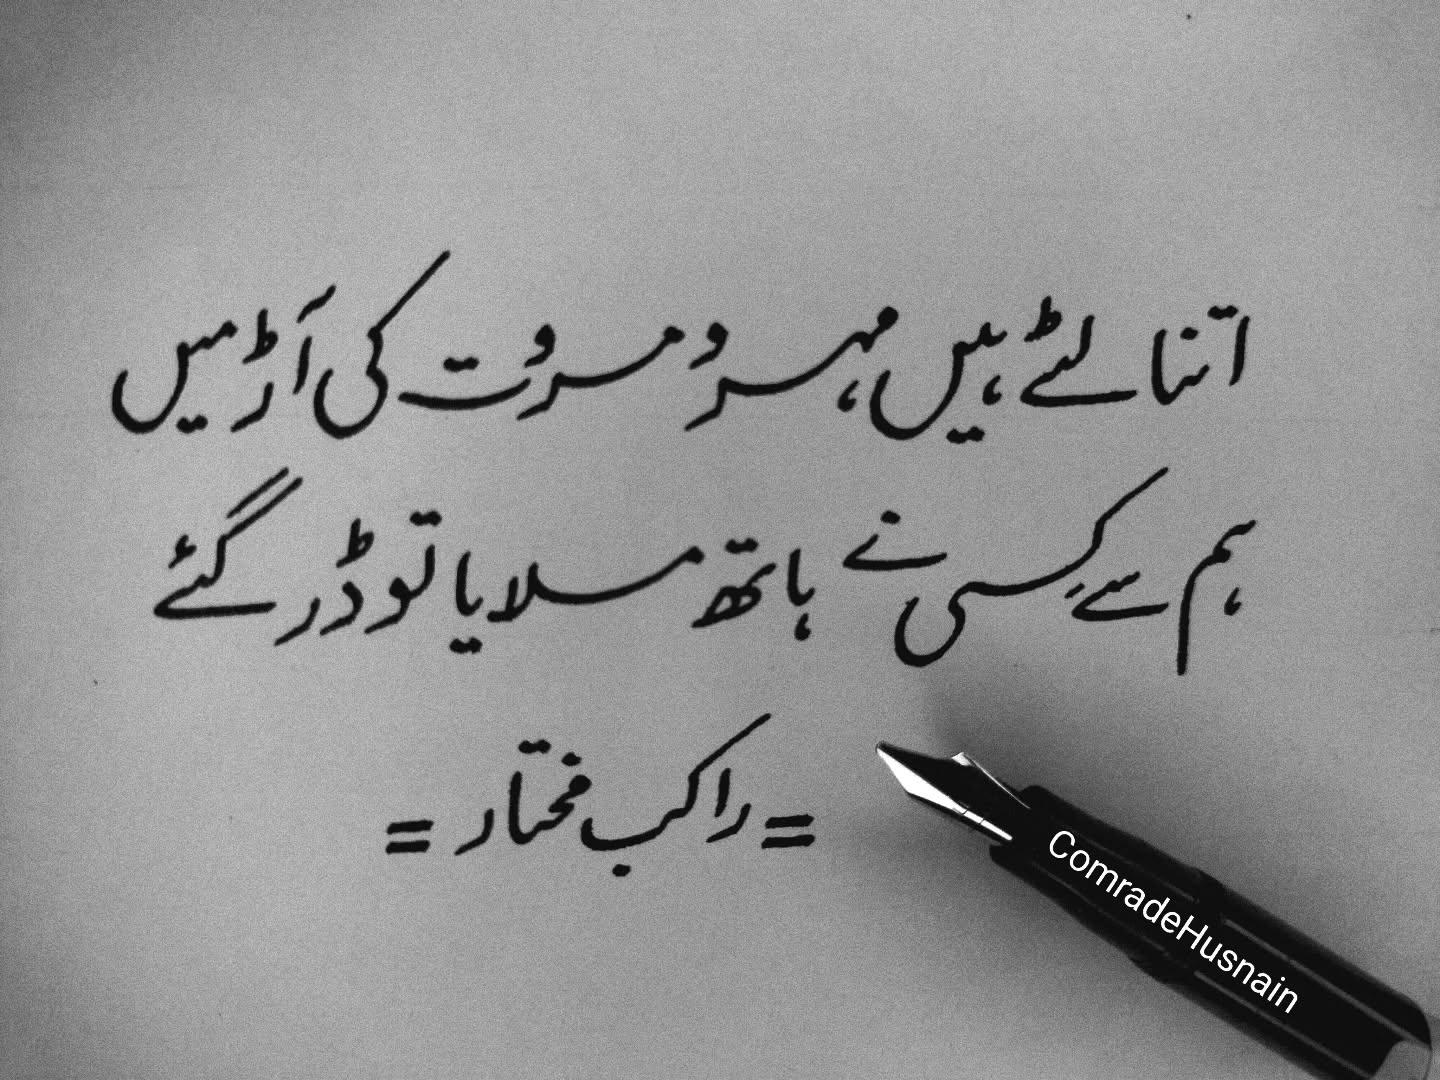 اتنا لٹے ہیں مہر و مروت کی آڑ میں
ہم سے کسی نے ہاتھ ملایا تو ڈر گئے
= راکب مختار =
ComradeHusnain